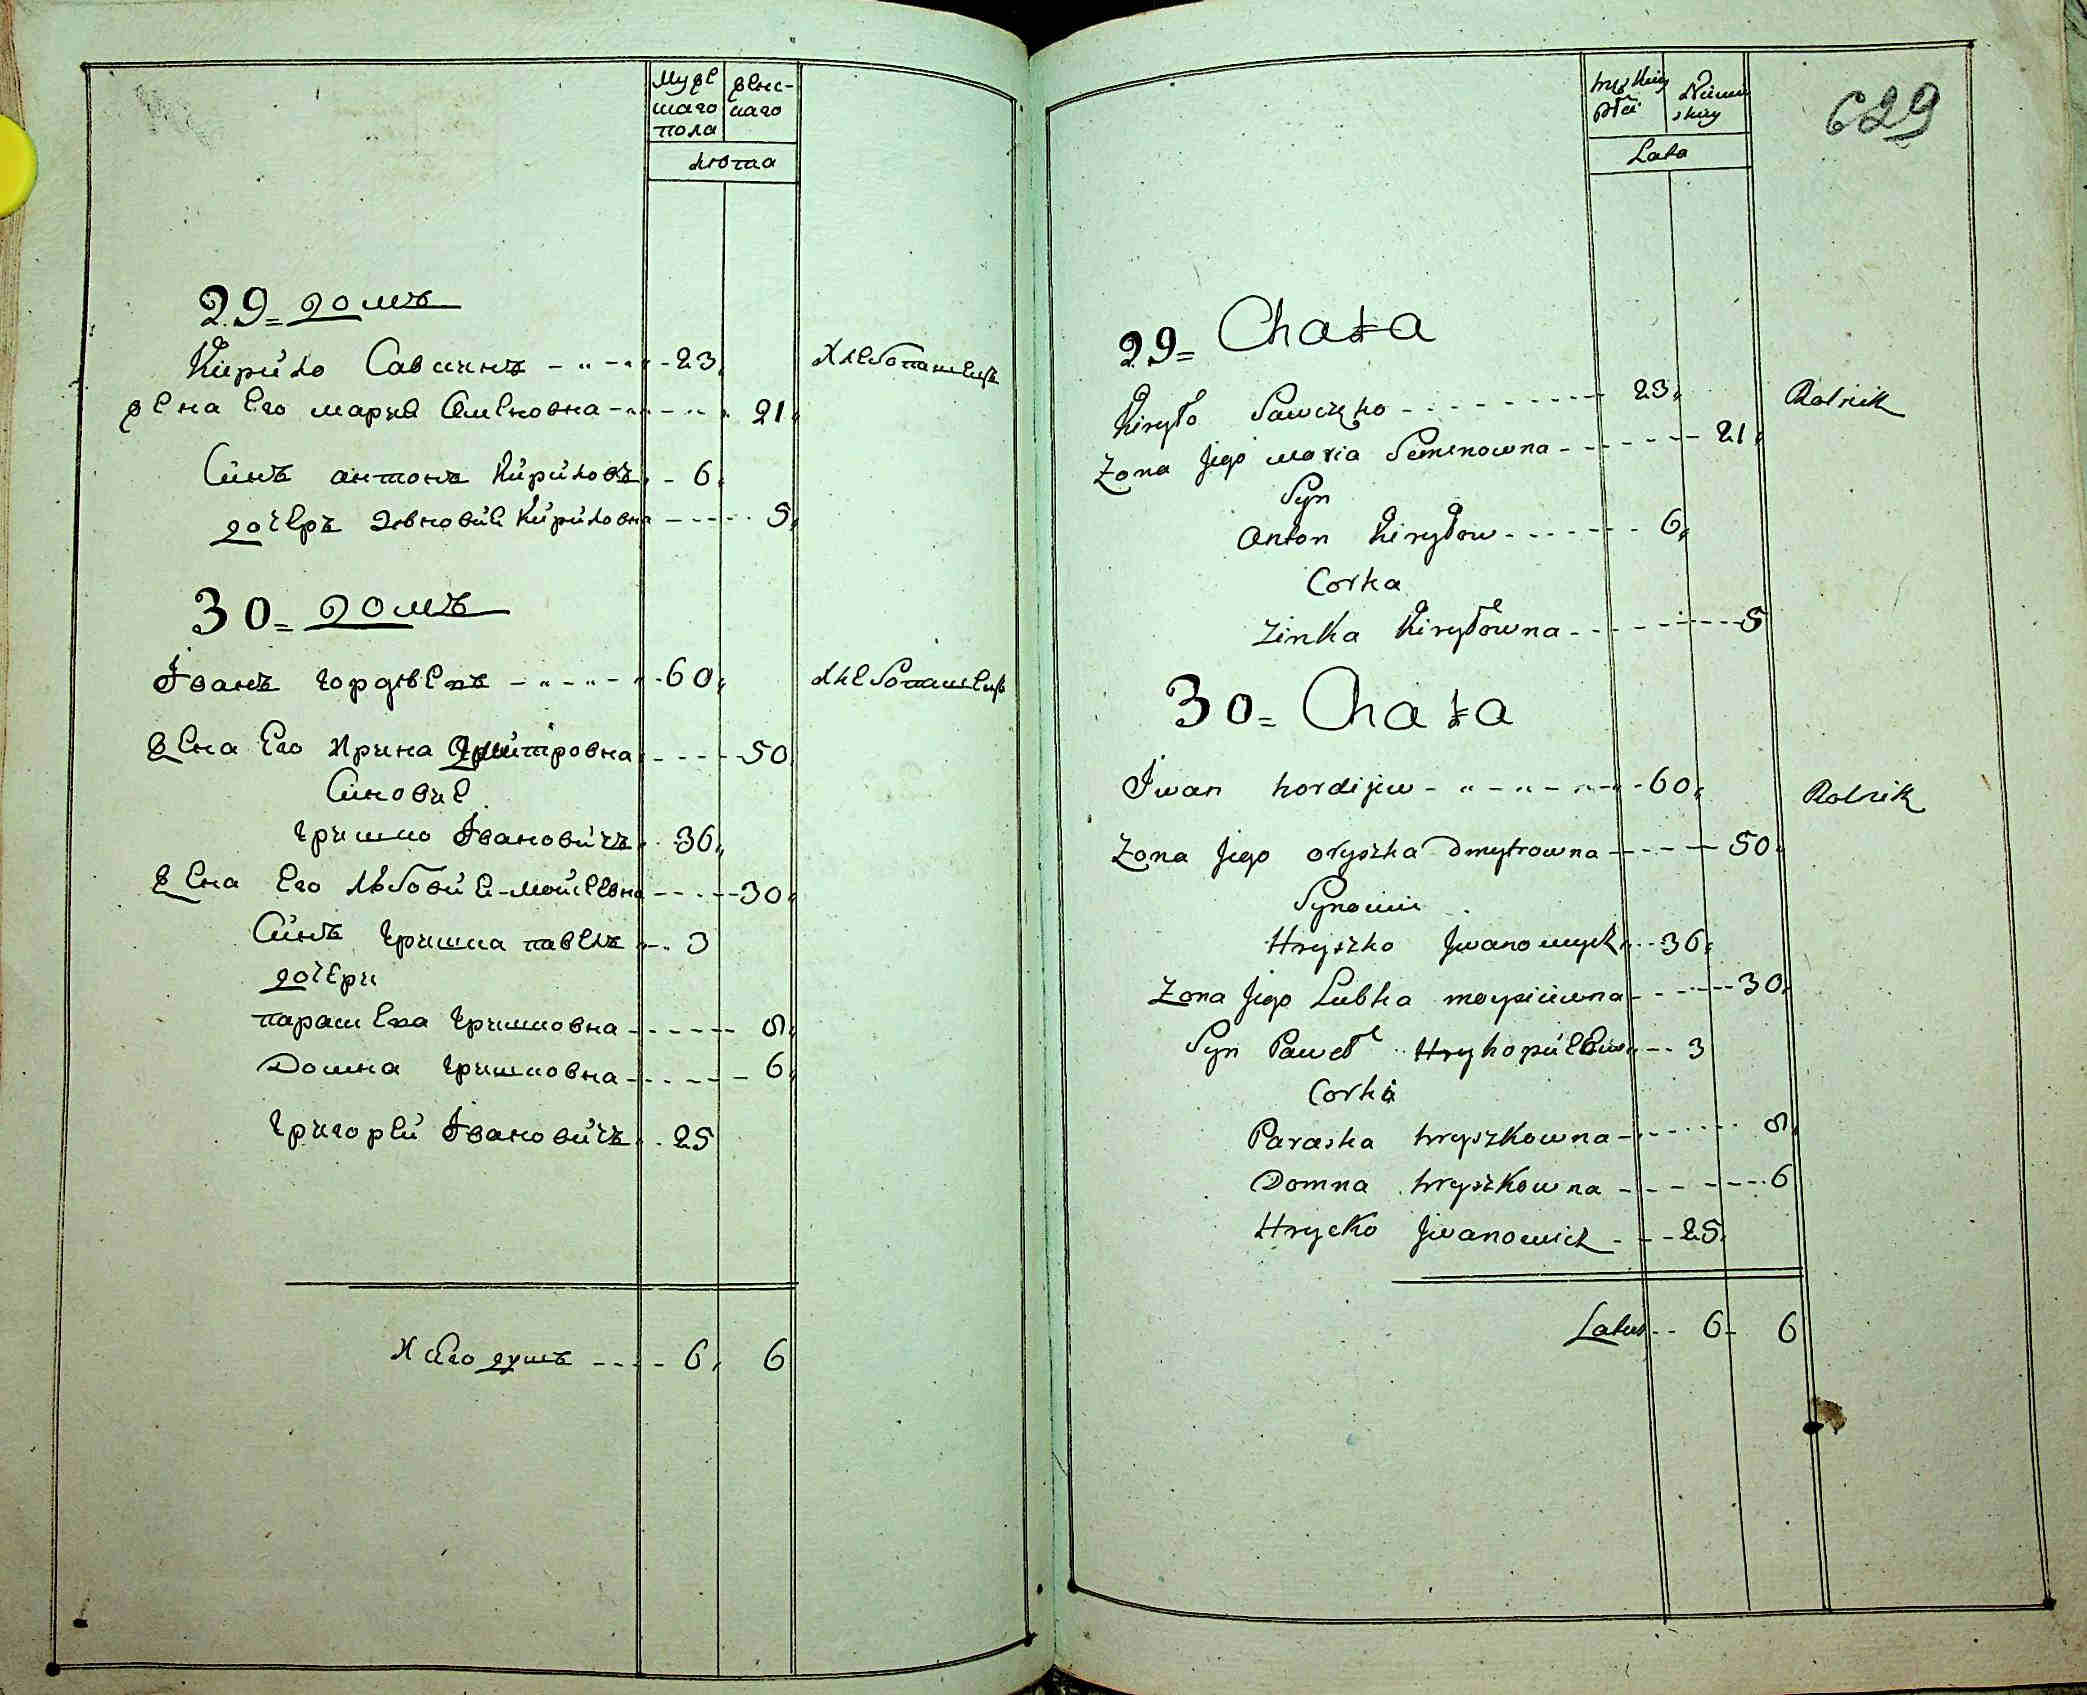 Мужешаго пола женскаго
Люта
29 = домъ
Кирило Савчинъ 23 Хлебопашецъ
жена Его мария Семеновна 21
Синъ антонъ Кириловъ 6
дочеръ Зиновия Кириловна 5
30 = домъ
Іванъ гордѣевъ 60 Хлебопашецъ
жена Его Ирина Дмитровна 50
Синовье
гришко Івановичъ 36
жена Его Любовие Моисеевна 30
Синъ гришка павелъ 3
дочери
парашева гришковна 8
Домна гришковна 6
григорей Івановичъ 25
И того душъ 6 6
629
męzkiey płci Niewiskiey
Lata
29 = Chata
Kiryło Sawczko 23 Rolnik
Zona Jego maria Semenowna 21
Syn
Anton Kiryłow 6
Corka
Zinka Kiryłowna 5
30 = Chata
Iwan hordijiw 60 Rolnik
Zona Jego oryszka Dmytrowna 50
Synowie
Hryszko Jwanowych 36
Zona Jego Lubka moysiiwna 30
Syn Paweł 3
Corki
Paraska hryszkowna 8
Domna hryszkowna 6
Hrycko Jwanowich 25
Latus 6 6